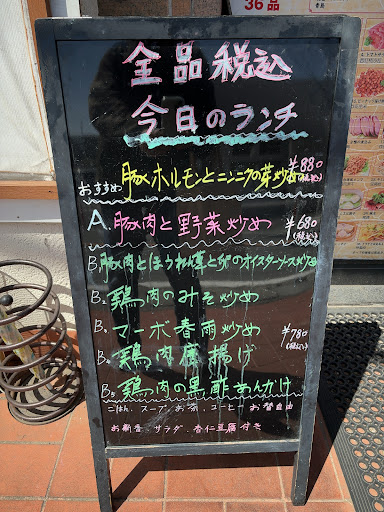 36品
全品税込
今日のランチ
おすすめ 豚ホルモンとニンニクの芽炒め ¥880
(税込)
A. 豚肉と野菜炒め ¥680
(税込)
B. 豚肉とほうれん草と卵のオイスターソース炒め
B. 鶏肉のみそ炒め
B. マーボ春雨炒め ¥780
(税込)
B. 鶏肉唐揚げ
B. 鶏肉の黒酢あんかけ
ごはん、スープ お茶、コーヒー お替自由
お新香 サラダ、杏仁豆腐付き